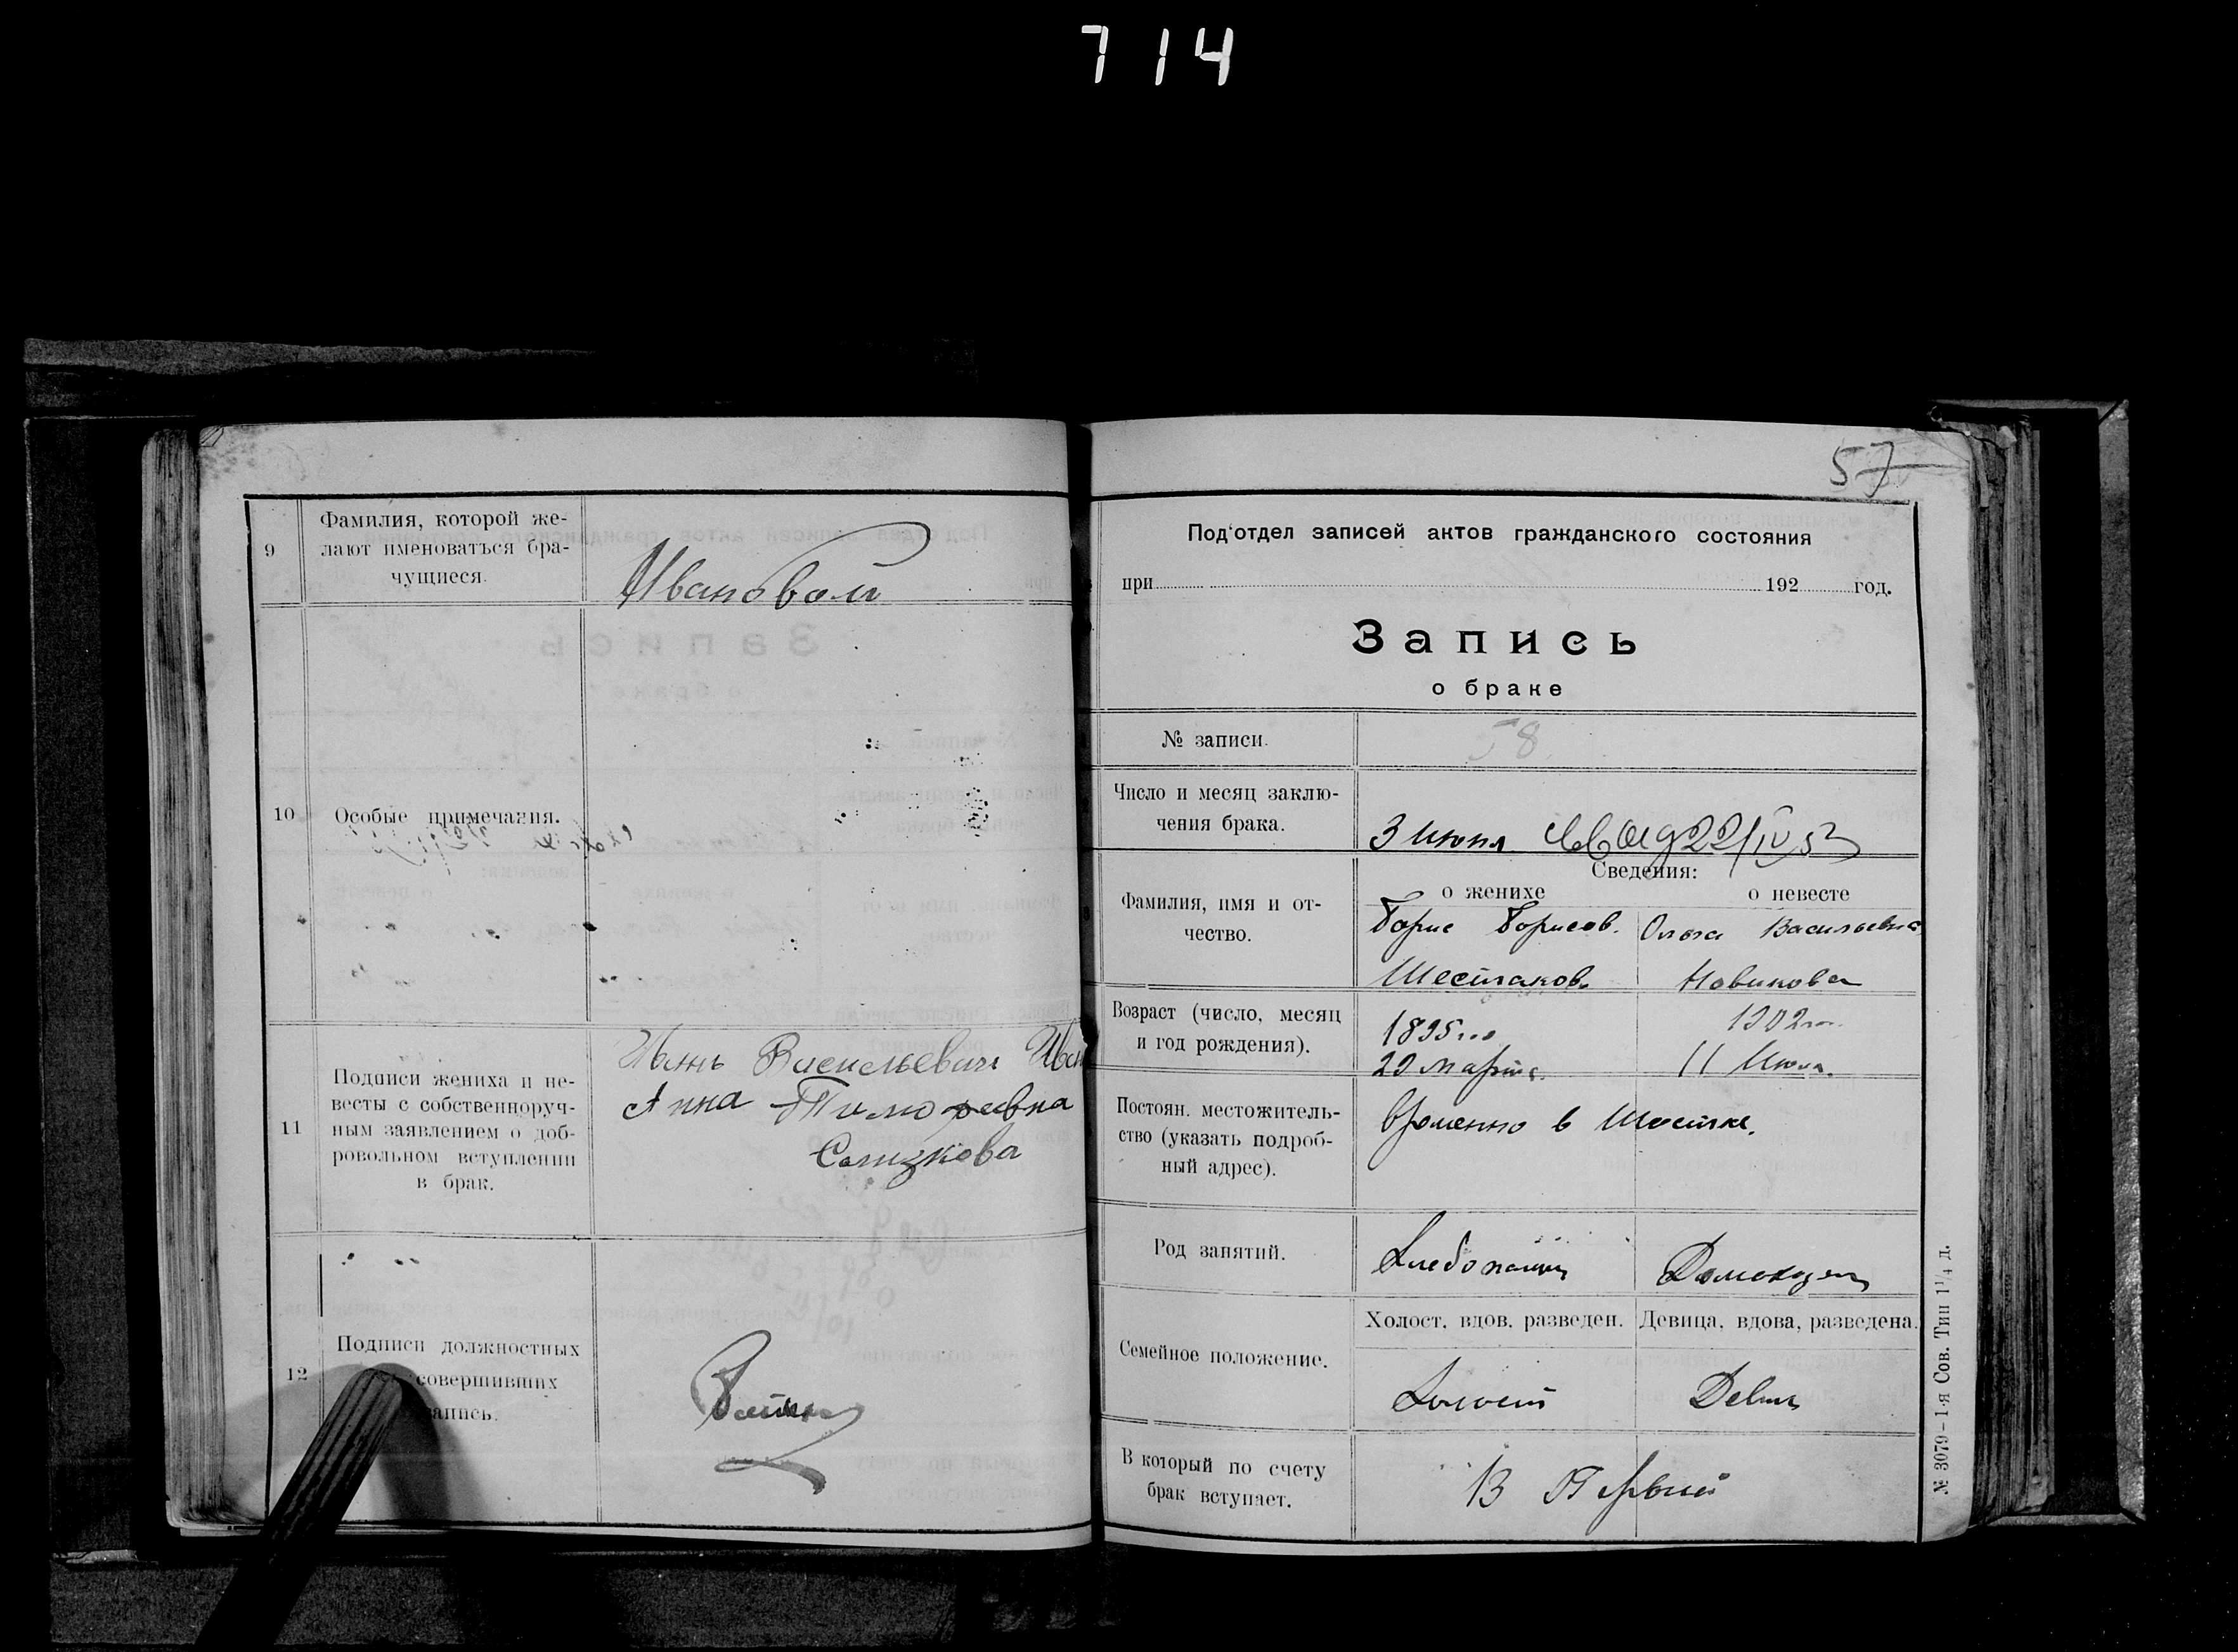 714
9
Фамилия, которой же-
лают именоваться бра-
чущиеся.
Ивановой
10
Особые примечания.
11
Подписи жениха и не-
весты с собственноруч-
ным заявлением о доб-
ровольном вступлении
в брак.
Васильевич
Анна Тимофеевна
12
Подписи должностных
совершивших
запись.
57
Под'отдел записей актов гражданского состояния
при 192 год.
Запись
о браке
№ записи.
58
Число и месяц заклю-
чения брака.
3 июня 22/IV 53
Сведения:
о женихе о невесте
Фамилия, имя и от-
чество.
Борис Борисов. Ольга Васильевна
Шестаков. Новикова
Возраст (число, месяц
и год рождения).
1895 го 1902 го
29 марта. 11 Июля.
Постоян. местожитель-
ство (указать подроб-
ный адрес).
Временно в Шостке.
Род занятий.
Хлебопашец
Семейное положение.
Холост. вдов. разведен. Девица, вдова, разведена.
Холост Девица
В который по счету
брак вступает.
В Первый
№ 3079-1-я Сов. Тип 1¼ д.